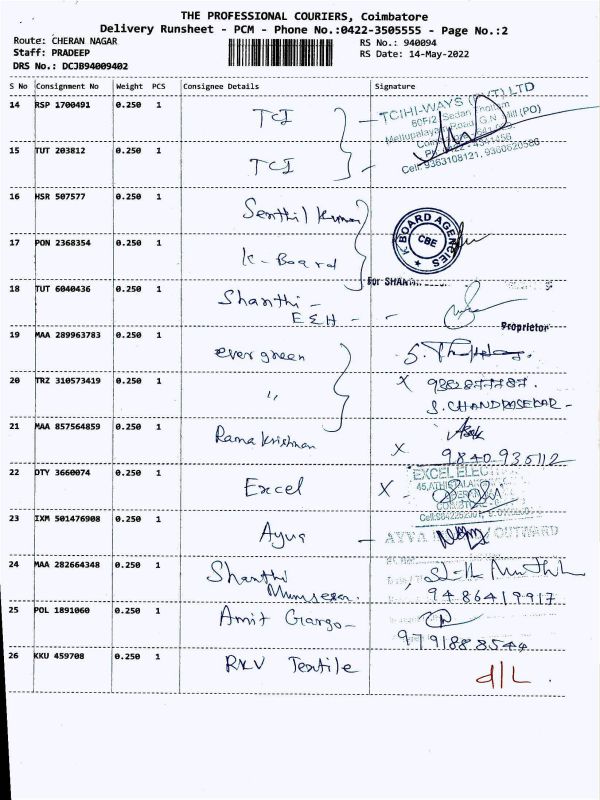 THE PROFESSIONAL COURIERS, Coimbatore
Delivery Runsheet - PCM - Phone No.:0422-3505555 - Page No.:2
Route: CHERAN NAGAR
RS No.: 940094
Staff: PRADEEP
RS Date: 14-May-2022
DRS No.: DCJB94009402
S No Consignment No Weight PCS Consignee Details Signature
14 RSP 1700491 0.250 1 TCI
TCIHI-WAYS (PVT) LTD
60F/2 Sedan Thottam
Mettupalayam Road, G.N. Mill (PO)
Cell: 9363108121, 9360620586
15 TUT 203812 0.250 1 TCI
16 HSR 507577 0.250 1 Senthil Kumar
K-BOARD AGENCIES
CBE
17 PON 2368354 0.250 1 K-Board
18 TUT 6040436 0.250 1 Shanthi -
E&H -
For SHAN
Proprietor
19 MAA 289963783 0.250 1 evergreen
20 TRZ 310573419 0.250 1 "
X
S. CHANDRASEKAR -
21 MAA 857564859 0.250 1 Rama Krishnan
X 9840935112
22 DTY 3660074 0.250 1 Excel X
EXCEL ELEC
23 IXM 501476908 0.250 1 Ayva -
AYVA OUTWARD
24 MAA 282664348 0.250 1 Shanthi
9486419917
25 POL 1891060 0.250 1 Amit Cargo -
9791888544
26 KKU 459708 0.250 1 RKV Textile
d/L.